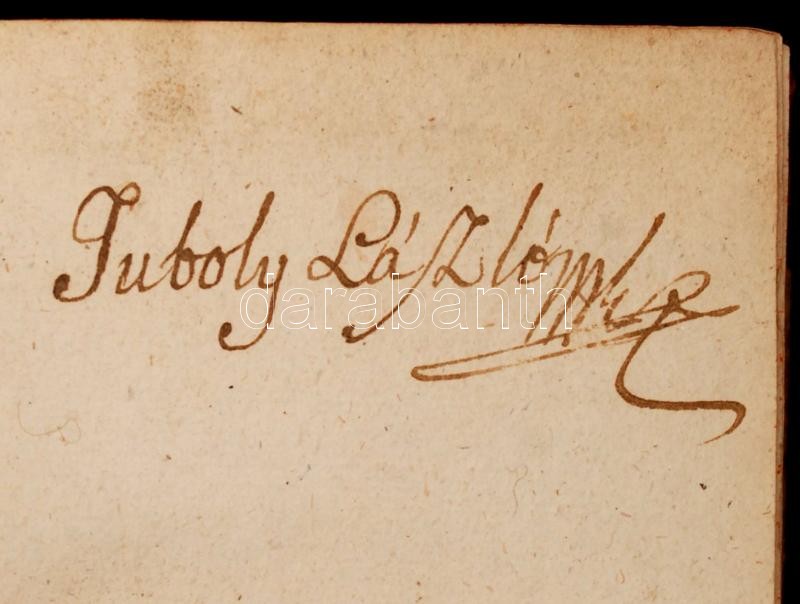 Tuboly László
darabanth